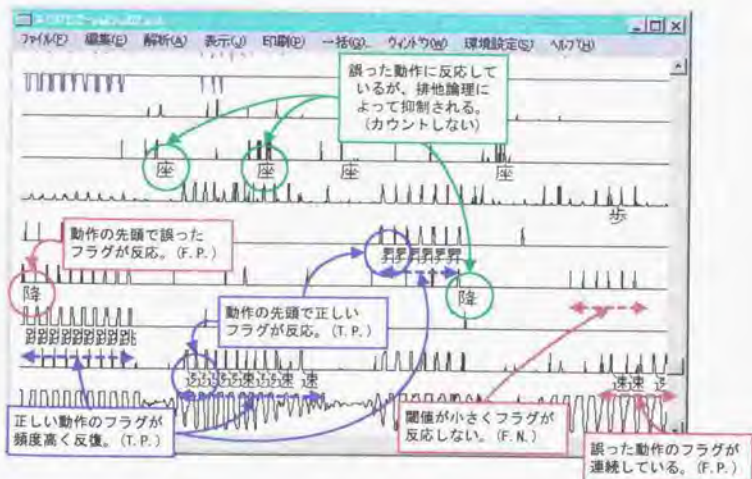 ファイル(F) 編集(E) 解析(A) 表示(J) 印刷(P) 一括(G).. ウィンドウ(W) 環境設定(S) ヘルプ(H)
誤った動作に反応して
いるが、排他論理に
よって抑制される。
(カウントしない)
座
座
座
座
歩
動作の先頭で誤った
フラグが反応。(F.P.)
降
降
動作の先頭で正しい
フラグが反応。(T.P.)
正しい動作のフラグが
頻度高く反復。(T.P.)
閾値が小さくフラグが
反応しない。(F.N.)
速速
誤った動作のフラグが
連続している。(F.P.)